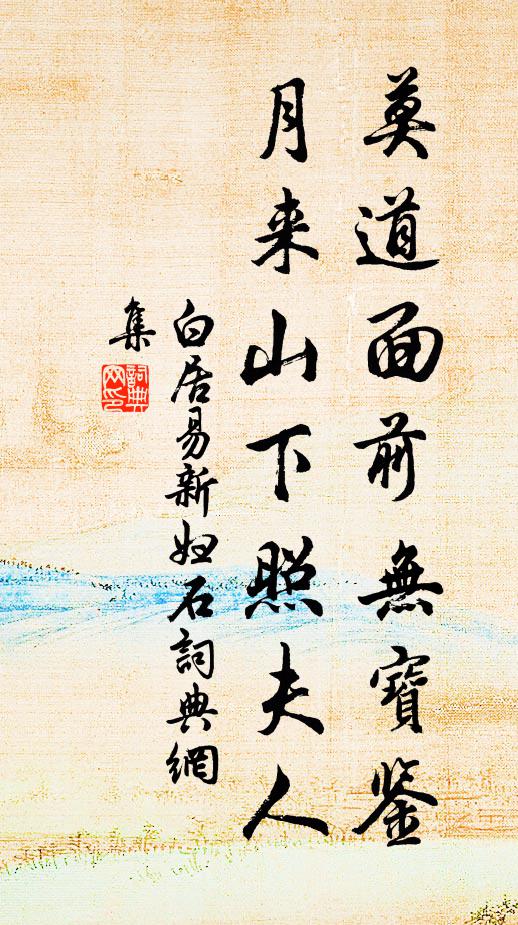 莫道面前無寶鑒
月来山下照夫人
白居易新妇石詞典網
集
詞典
网印